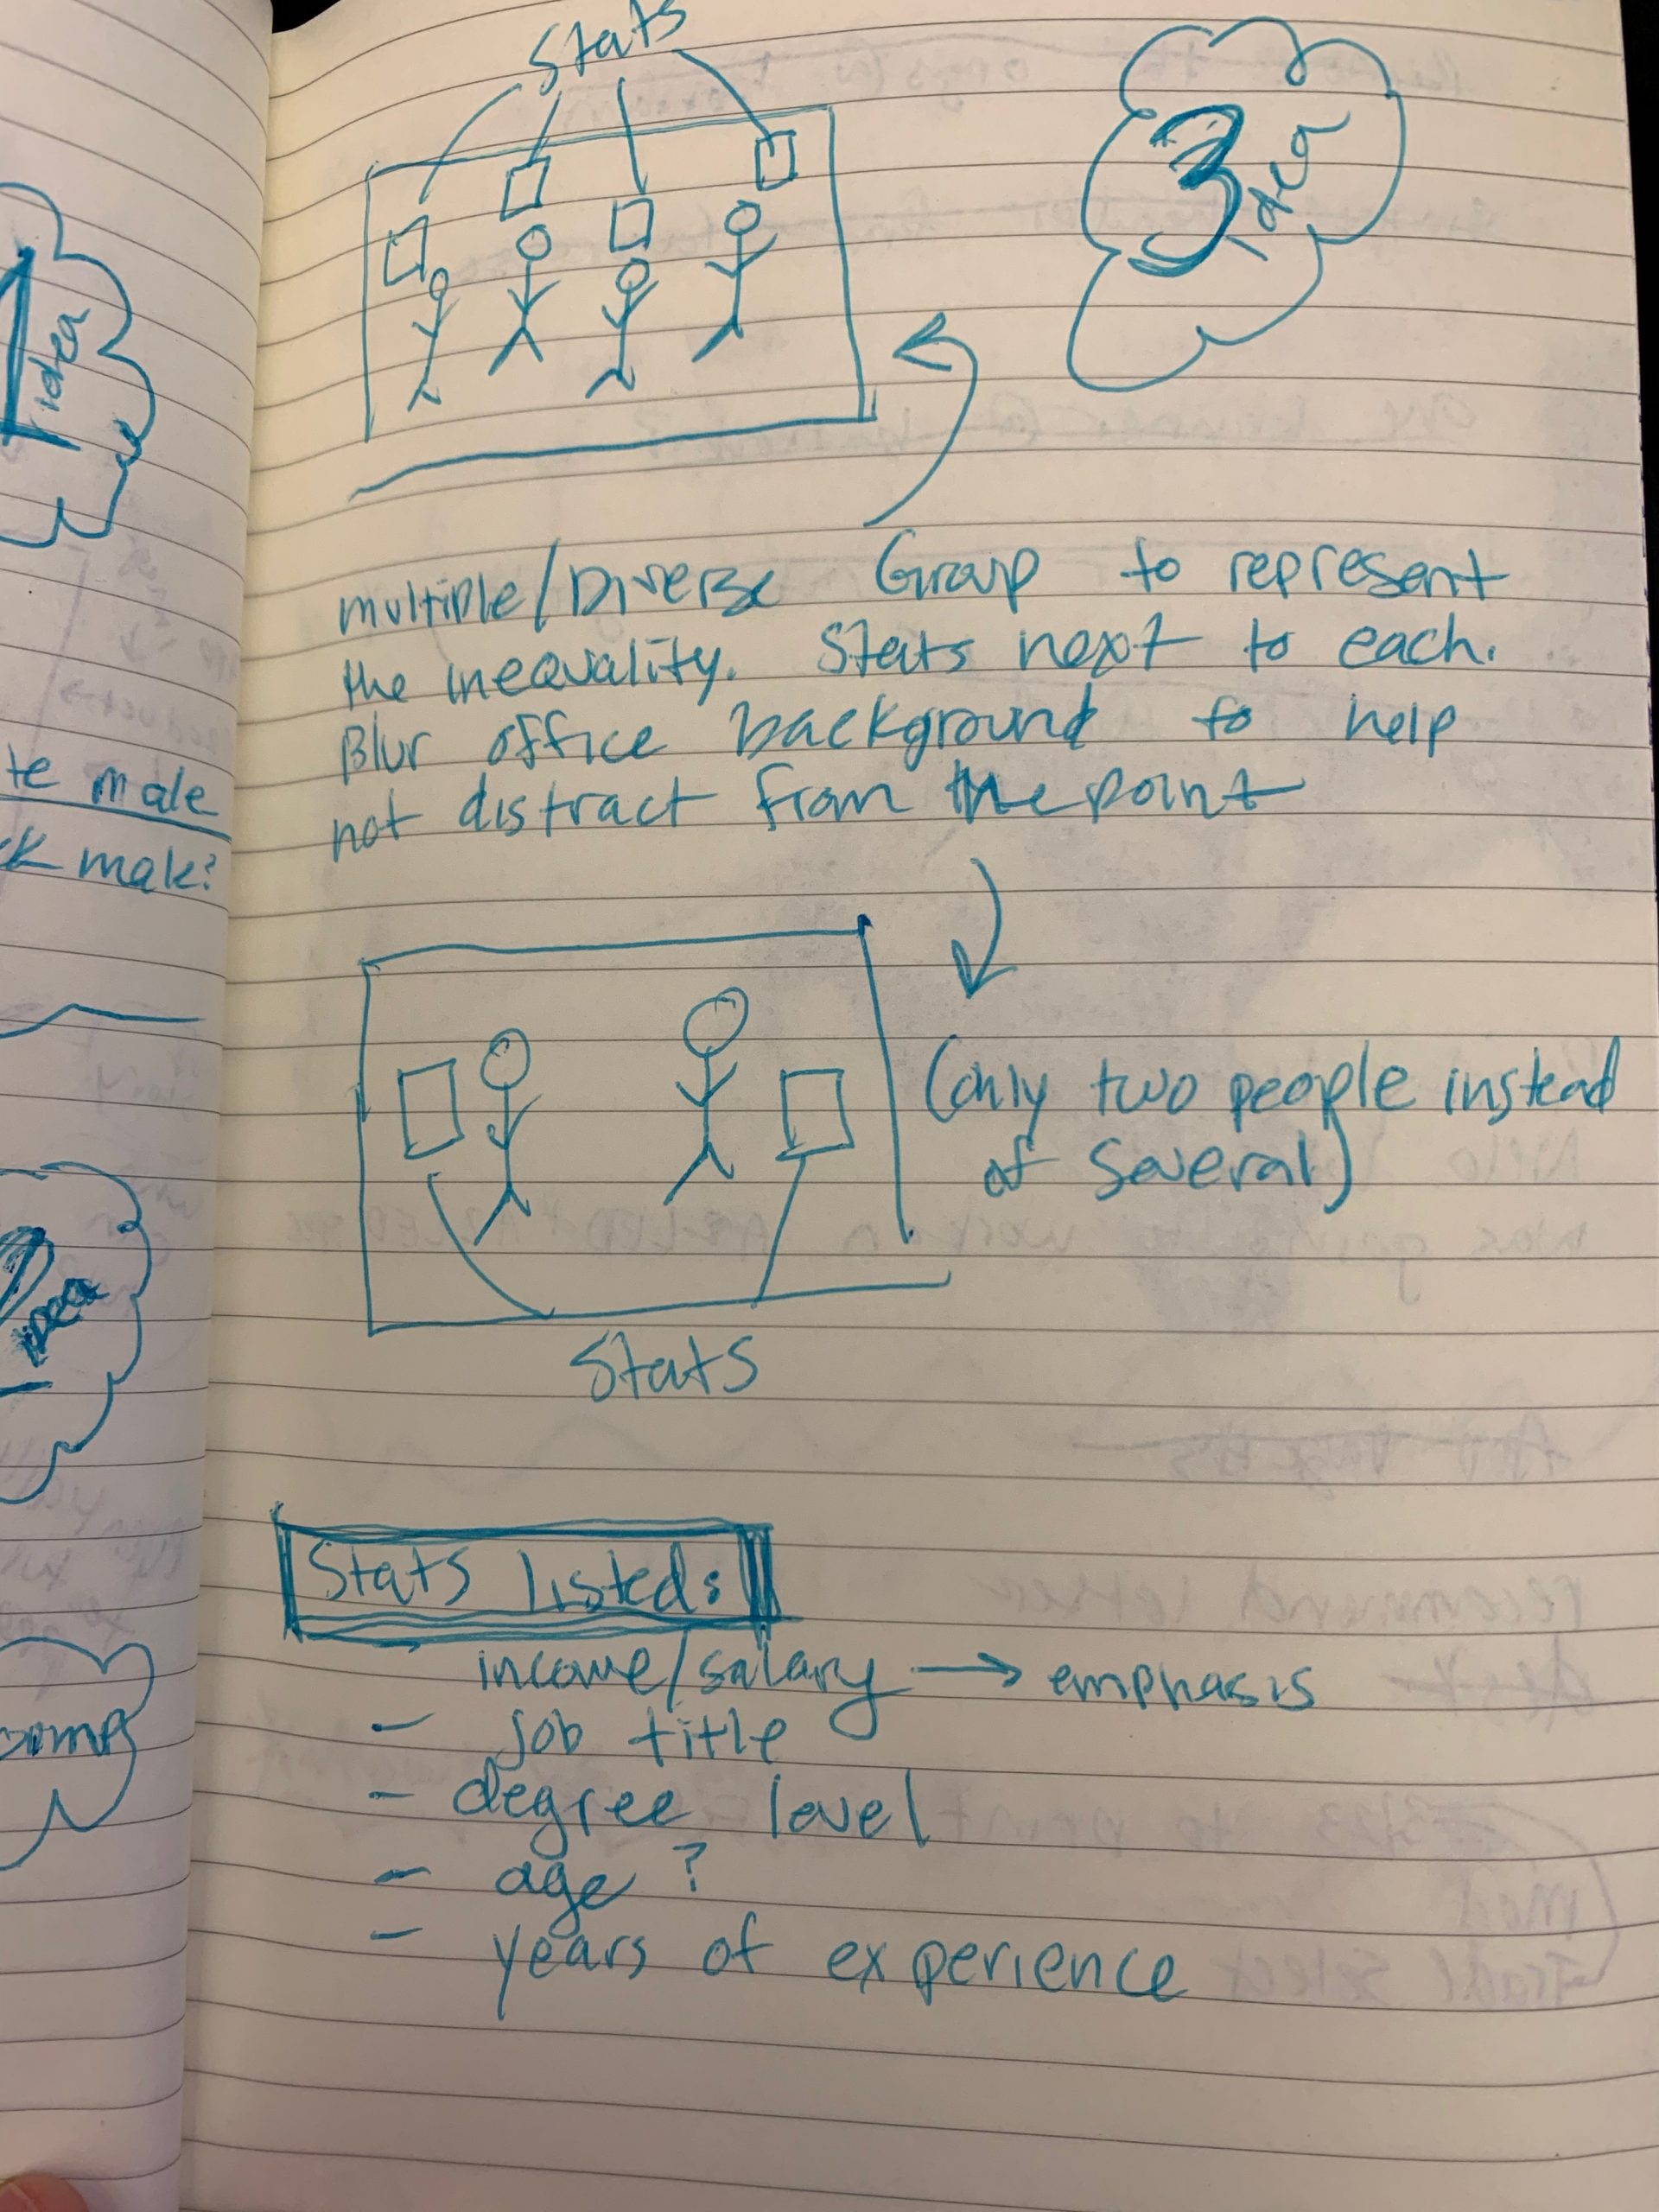 Stats
3
idea
1
idea
multiple/Diverse Group to represent
the inequality. Stats next to each.
Blur office background to help
not distract from the point
te male
ck male?
(only two people instead
of several)
Stats
2
idea
Stats Listed:
income/salary → emphasis
- job title
- degree level
- age ?
- years of experience
comp